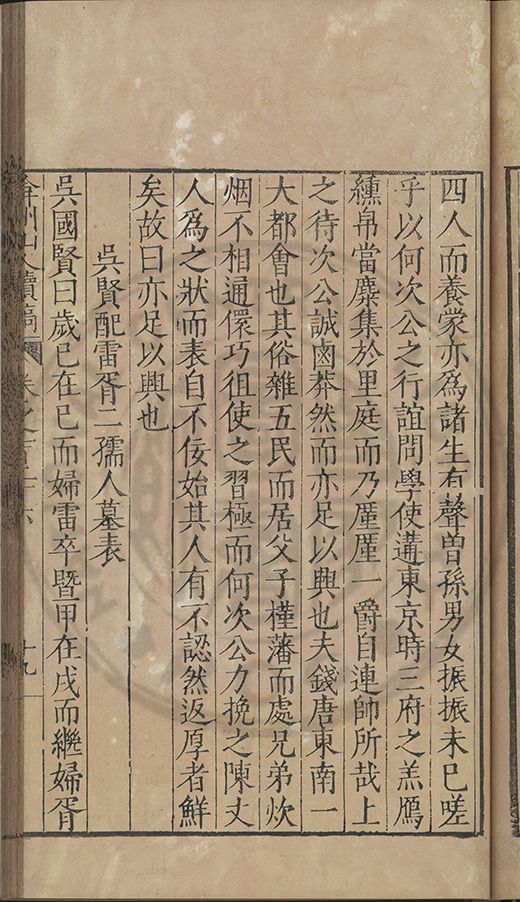 四人而養蒙亦爲諸生有聲曾孫男女振振未已嗟
乎以何次公之行誼問學使遘東京時三府之羔鴈
纁帛當麋集於里庭而乃厪厪一爵自連帥所哉上
之待次公誠鹵莽然而亦足以興也夫錢唐東南一
大都會也其俗雜五民而居父子槿藩而處兄弟炊
烟不相通儇巧徂使之習極而何次公力挽之陳丈
人爲之狀而表自不佞始其人有不認然返厚者鮮
矣故曰亦足以興也
吳賢配雷胥二孺人墓表
吳國賢曰歲巳在巳而婦雷卒暨甲在戌而繼婦胥
弇州山人續稿 卷之一百二十六 十九